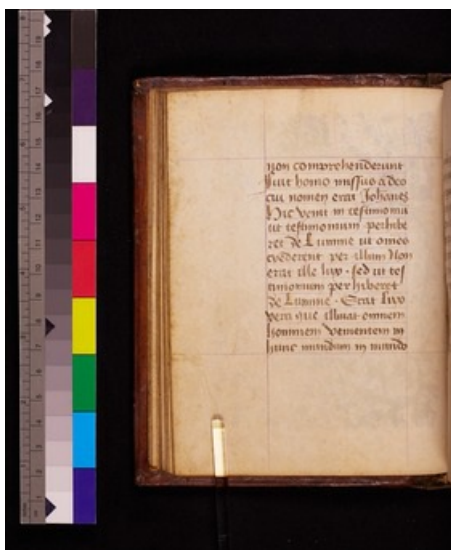 non comprehenderunt
fuit homo missus a deo
cui nomen erat Johanes
Hic venit in testimoniu
ut testimonium perhibe
ret de Lumine ut omes
crederent per illum Non
erat ille lux · sed ut tes
timonium perhiberet
de Lumine · Erat lux
vera que illuiat omnem
hominem venientem in
hunc mundum in mundo